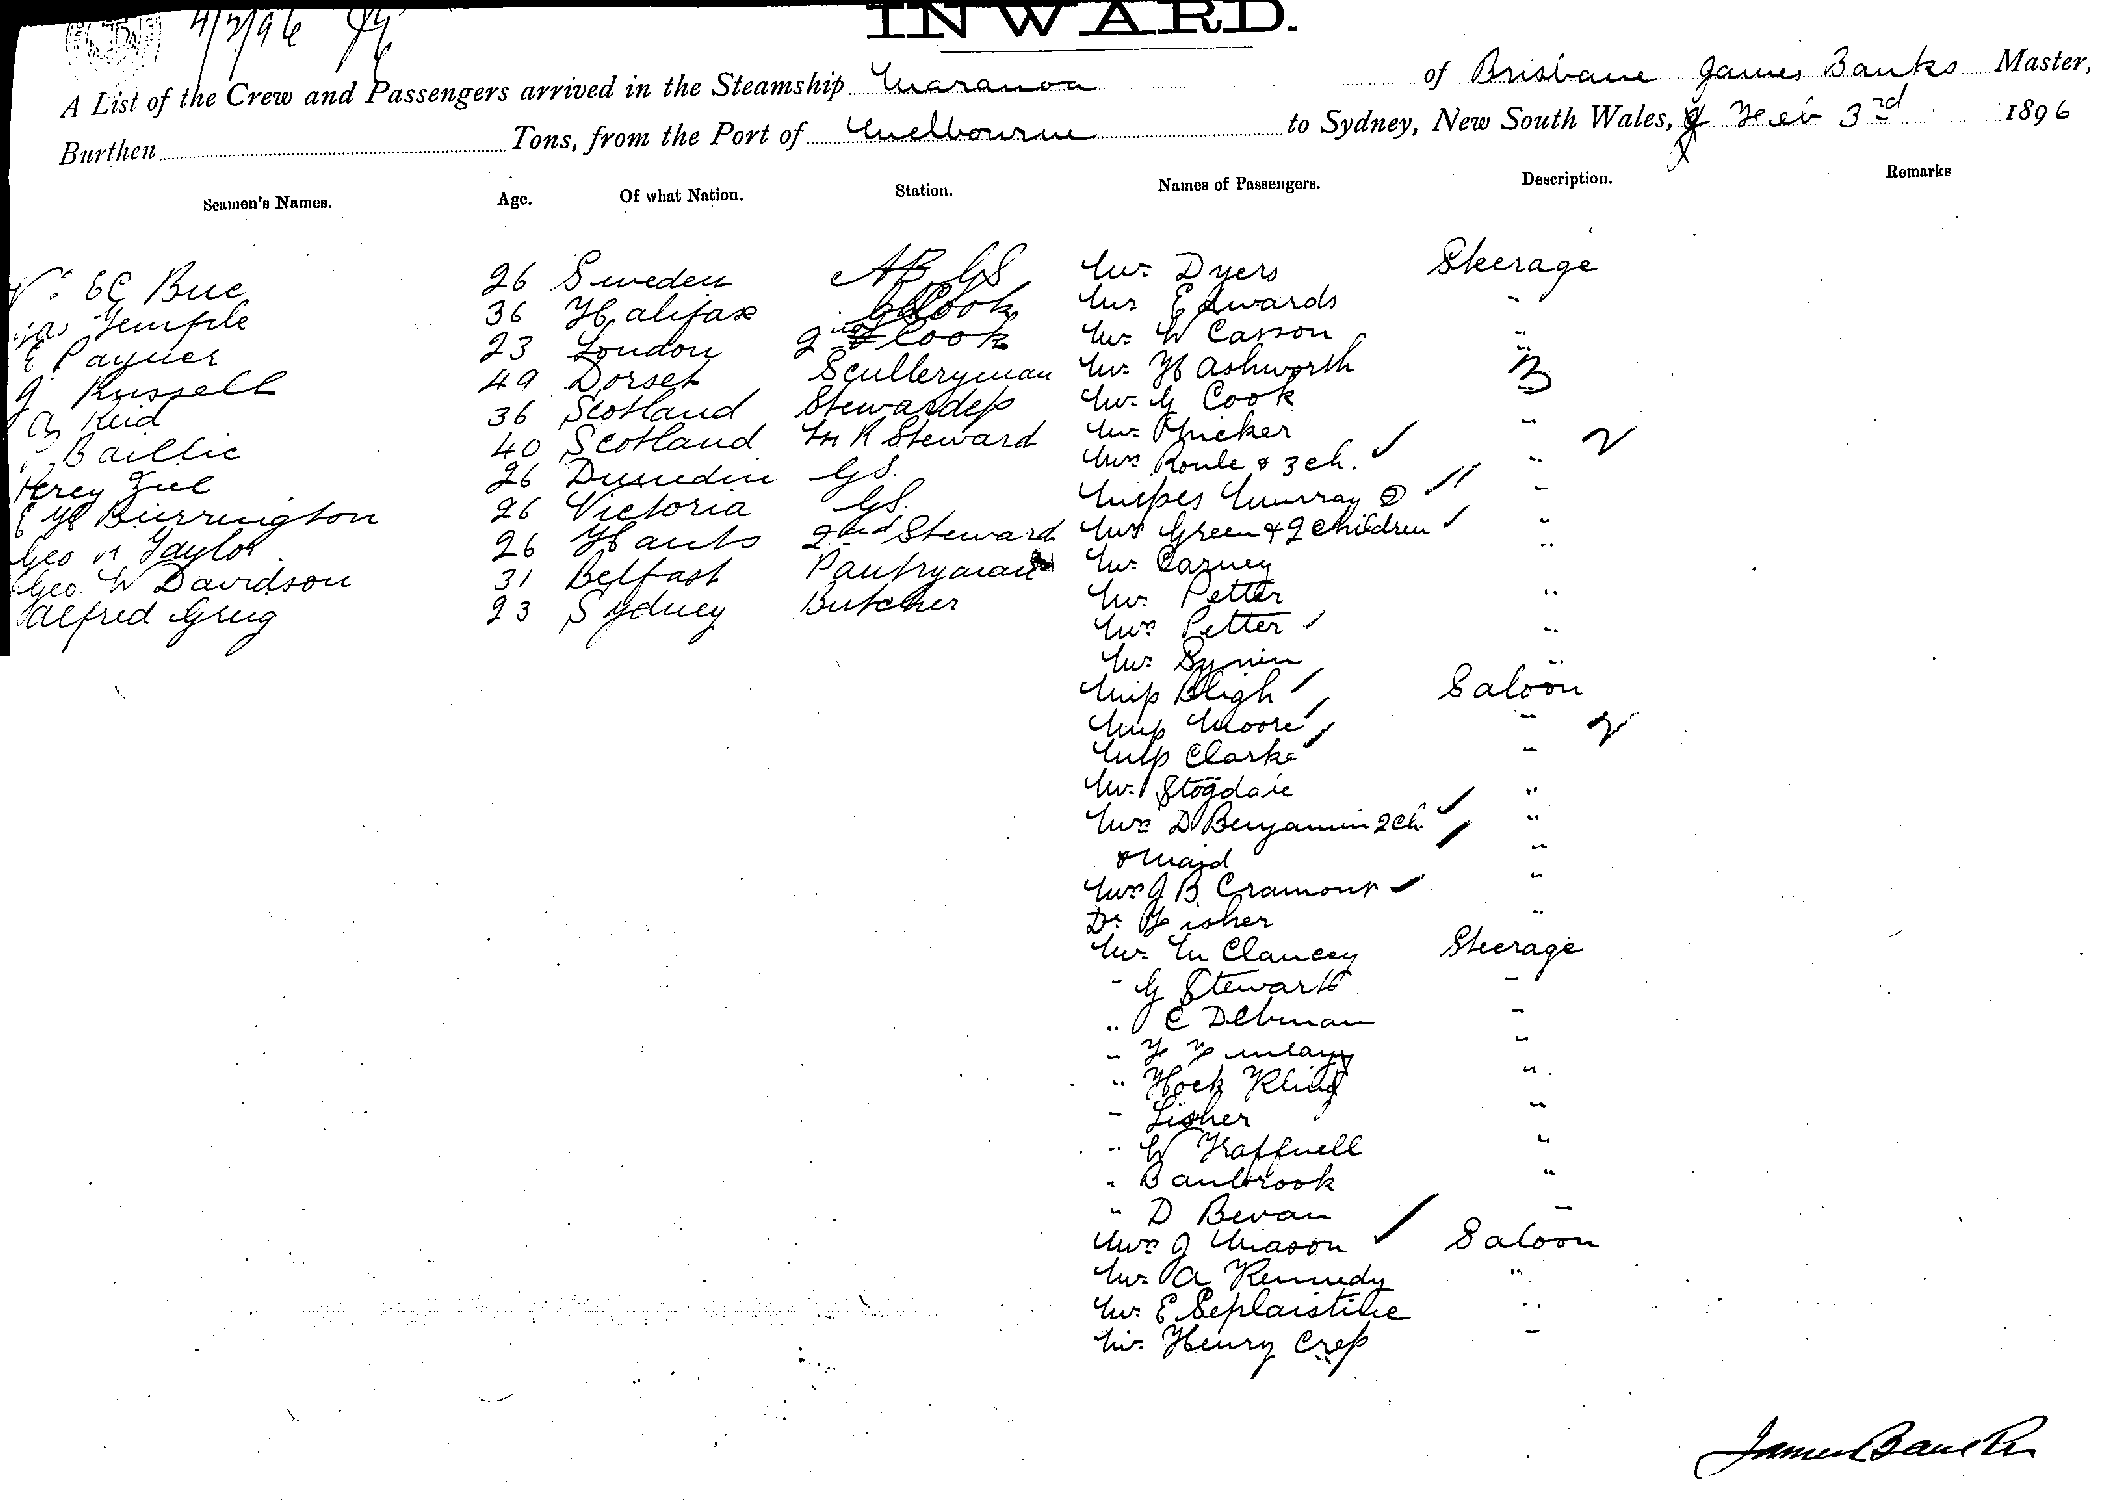 4/2/96
INWARD.
A List of the Crew and Passengers arrived in the Steamship Maranoa of Brisbane James Banks Master,
Burthen Tons, from the Port of Melbourne to Sydney, New South Wales, Feb 3rd 1896
Seamen's Names. Age. Of what Nation. Station. Names of Passengers. Description. Remarks
26 Sweden AB GS Mr Dyers Steerage
Temple 36 Halifax Cook Mr Edwards "
E Payner 23 London 2nd Cook Mr W Casson "
J Russell 49 Dorset Sculleryman Mr H Ashworth " 3
Reid 36 Scotland Stewardess Mr G Cook
Baillie 40 Scotland Steward Mr Thicker "
Percy Ziel 26 Dunedin GS. Mrs Roule & 3 ch. ✓ " 2
Burrington 26 Victoria GS. Misses Murray 2 "
Geo Taylor 26 Hants 2nd Steward Mrs Green & 2 children ✓ "
Geo. W Davidson 31 Belfast Pantryman Mr Carney "
Alfred Greig 23 Sydney Butcher Mr Petter "
Mrs Petter "
Mr "
Miss Bligh Saloon
Miss Moore " 2
Miss Clarke "
Mr Stogdale "
Mrs D Benjamin 2 ch ✓ "
& Maid "
Mrs J B Cramond ✓ "
Dr Fisher "
Mr M Clancey Steerage
" G Stewart "
" C "
" F Finlay "
" Hock Kling "
" Lisher "
" W "
" Banbrook "
" D Bevan "
Mrs J Mason ✓ Saloon
Mr A Kennedy "
Mr E "
Mr Henry Cress "
James Banks